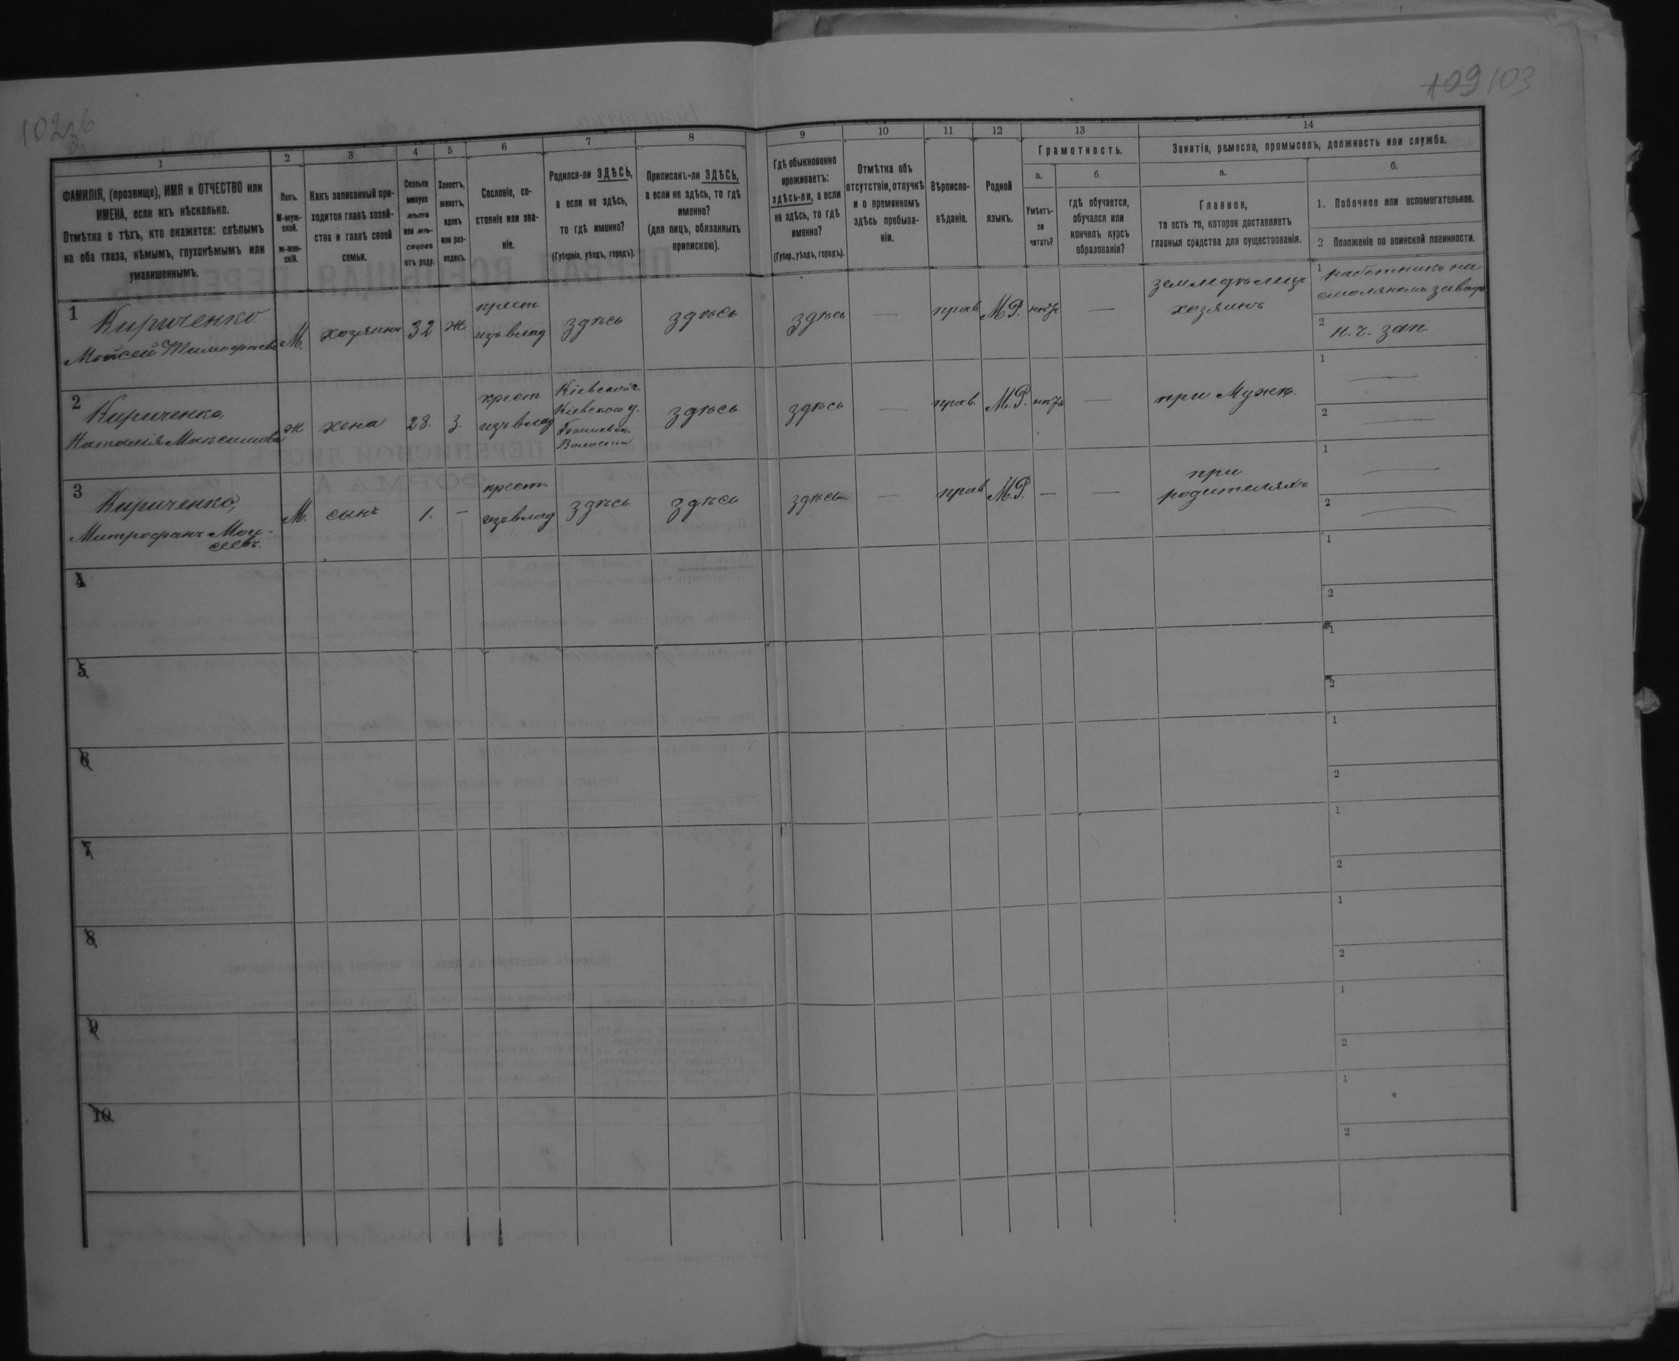 102об
109 103
1 2 3 4 5 6 7 8 9 10 11 12 13 14
ФАМИЛІЯ, (прозвище), ИМЯ и ОТЧЕСТВО или
ИМЕНА, если ихъ нѣсколько.
Отмѣтка о тѣхъ, кто окажется: слѣпымъ
на оба глаза, нѣмымъ, глухонѣмымъ или
умалишеннымъ.
Полъ.
М-муж-
ской.
Ж-жен-
скій.
Какъ записанный при-
ходится главѣ хозяй-
ства и главѣ своей
семьи.
Сколько
минуло
лѣтъ
или мѣ-
сяцевъ
отъ роду.
Холостъ,
женатъ,
вдовъ
или раз-
веденъ.
Сословіе, со-
стояніе или зва-
ніе.
Родился-ли ЗДѢСЬ,
а если не здѣсь,
то гдѣ именно?
(Губернія, уѣздъ, городъ).
Приписанъ-ли ЗДѢСЬ,
а если не здѣсь, то гдѣ
именно?
(для лицъ, обязанныхъ
припискою).
Гдѣ обыкновенно
проживаетъ:
здѣсь-ли, а если
не здѣсь, то гдѣ
именно?
(Губер., уѣздъ, городъ).
Отмѣтка объ
отсутствіи, отлучкѣ
и о временномъ
здѣсь пребыва-
ніи.
Вѣроиспо-
вѣданіе.
Родной
языкъ.
Грамотность.
а.
Умѣетъ-
ли
читать?
б.
гдѣ обучается,
обучался или
кончилъ курсъ
образованія?
Занятіе, ремесло, промыселъ, должность или служба.
а.
Главное,
то есть то, которое доставляетъ
главныя средства для существованія.
б.
1. Побочное или вспомогательное.
2 Положеніе по воинской повинности.
1 Кириченко
Мойсей Тимофѣевъ
М. хозяинъ 32 ж.
крест.
изъ влад
здѣсь здѣсь здѣсь — прав. М.Р. нѣтъ —
земледѣлецъ
хозяинъ
1 работникъ на
смоляномъ завод
2 н. ч. зап
2 Кириченко,
Наталія Максимова
ж жена 28. з.
крест
изъ влад
Кіевской г.
Кіевского у.
Волости
здѣсь здѣсь — прав. М.Р. нѣтъ — при Мужѣ.
1 —
2 —
3 Кириченко,
Митрофанъ Мои-
сеевъ.
М. сынъ 1. —
крест
изъ влад
здѣсь здѣсь здѣсь — прав М.Р. — —
при
родителяхъ
1 —
2 —
4 1
2
5 1
2
6 1
2
7 1
2
8 1
2
9 1
2
10 1
2